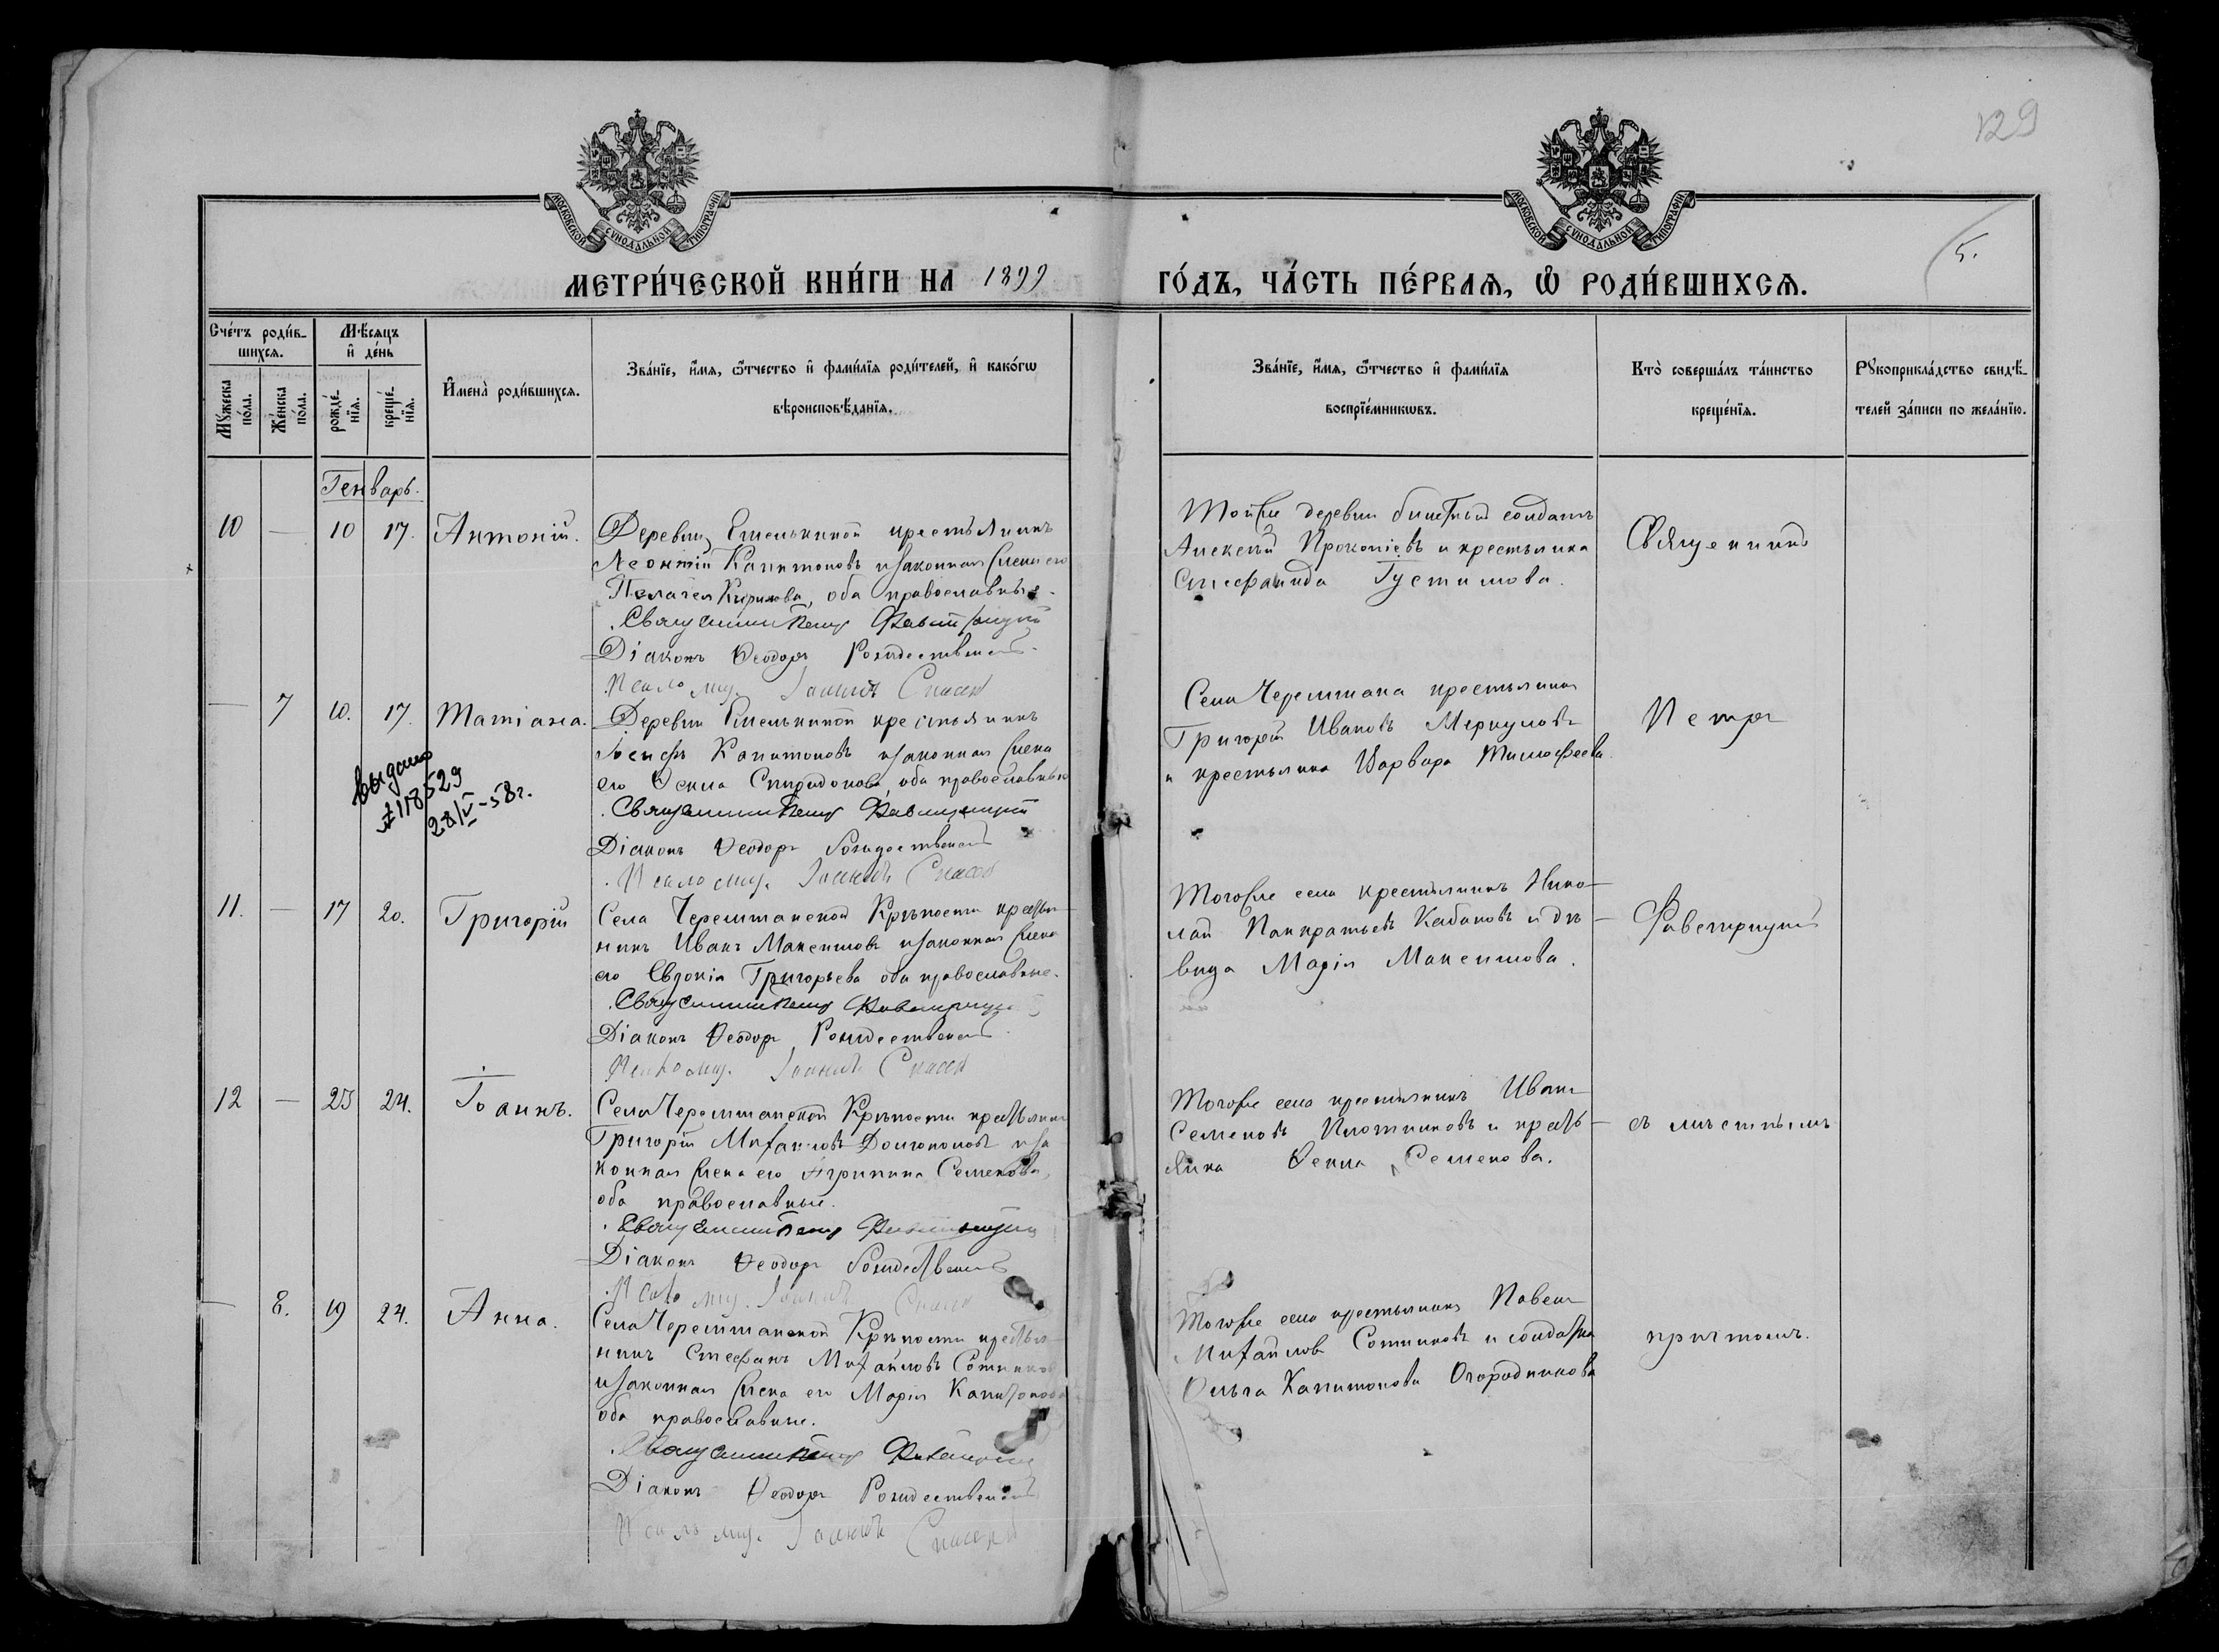 129
5.
МОСКОВСКОЙ СѴНОДАЛЬНОЙ ТИПОГРАФІИ
МОСКОВСКОЙ СѴНОДАЛЬНОЙ ТИПОГРАФІИ
МЕТРИ́ЧЕСКОЙ КНИ́ГИ НА 1899 ГО́ДЪ, ЧА́СТЬ ПЕ́РВАѦ, Ѡ҆ РОДИ́ВШИХСѦ.
Сче́тъ роди́в-
шихсѧ.
Мꙋ́жеска
по́ла.
Же́нска
по́ла.
Мѣ́сѧцъ
и҆ де́нь
рожде́-
нїѧ.
креще́-
нїѧ.
И҆мена̀ роди́вшихсѧ.
Зва́нїе, и҆́мѧ, ѻ҆́тчество и҆ фами́лїѧ роди́телей, и҆ како́гѡ
вѣроисповѣ́данїѧ.
Зва́нїе, и҆́мѧ, ѻ҆́тчество и҆ фами́лїѧ
воспрїе́мникѡвъ.
Кто̀ соверша́лъ та́инство
креще́нїѧ.
Рꙋкоприкла́дство свидѣ́-
телей за́писи по жела́нїю.
Генварь.
10 — 10 17. Антоній.
Деревни Емелькиной крестьянинъ
Леонтій Капитоновъ и законная жена его
Пелагея Кирилова, оба православные.
Священникъ Петръ Фавстрицкій
Діаконъ Ѳеодоръ Рождественскій
Псаломщ. Іоаннъ Спасскій
Тойже деревни билетный солдатъ
Алексей Прокопіевъ и крестьянка
Стефанида Густимова.
Священникъ
— 7 10. 17. Татіана.
выдано
№118529
28/V-58г.
Деревни Емелькиной крестьянинъ
Іосифъ Капитоновъ и законная жена
его Ѳекла Спиридонова, оба православные
Священникъ Петръ Фавстрицкій
Діаконъ Ѳеодоръ Рождественскій
Псаломщ. Іоаннъ Спасскій
Села Черемшана крестьянинъ
Григорій Ивановъ Меркуловъ
и крестьянка Варвара Тимофеева.
Петръ
11. — 17 20. Григорій
Села Черемшанской Крѣпости крестья-
нинъ Иванъ Максимовъ и законная жена
его Евдокія Григорьева оба православные.
Священникъ Петръ Фавстрицкій
Діаконъ Ѳеодоръ Рождественскій
Псаломщ. Іоаннъ Спасскій
Тогоже села крестьянинъ Нико-
лай Панкратьевъ Кабановъ и дѣ-
вица Марія Максимова.
Фавстрицкій
12 — 23 24. Іоаннъ.
Села Черемшанской Крѣпости крестьянинъ
Григорій Михаиловъ Долгополовъ и за
конная жена его Агрипина Семенова,
оба православные.
Священникъ Петръ Фавстрицкій
Діаконъ Ѳеодоръ Рождественскій
Псаломщ. Іоаннъ Спасскій
Тогоже села крестьянинъ Иванъ
Семеновъ Плотниковъ и кресть-
янка Ѳекла Семенова.
съ мѣстнымъ
— 8. 19 24. Анна.
Села Черемшанской Крѣпости крестья-
нинъ Стефанъ Михайловъ Сотниковъ
и законная жена его Марія Капитонова
оба православные.
Священникъ Петръ Фавстрицкій
Діаконъ Ѳеодоръ Рождественскій
Псаломщ. Іоаннъ Спасскій
Тогоже села крестьянинъ Павелъ
Михайловъ Сотниковъ и солдатка
Ольга Капитонова Огородникова
причтомъ.